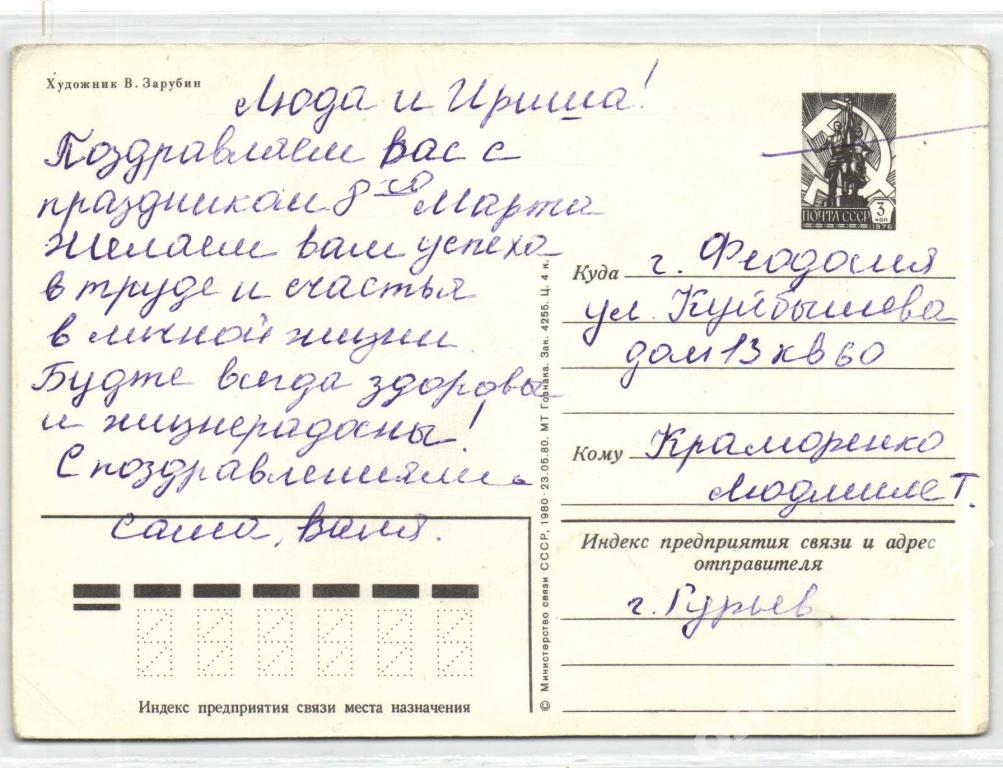 Художник В. Зарубин
Люда и Ириша!
Поздравляем Вас с
праздником 8 хо Марта
Желаем вам успеха
в труде и счастья
в личной жизни.
Будте всегда здоровы
и жизнерадосны!
С поздравлениями
Саша, Валя.
Индекс предприятия связи места назначения
© Министерство связи СССР, 1980 · 23.05.80. МТ Гознака. Зак. 4255. Ц. 4 к.
ПОЧТА СССР 3 КОП
1976
Куда г. Феодосия
ул. Куйбышева
дом 13 кв 60
Кому Краморенко
Людмиле Т.
Индекс предприятия связи и адрес
отправителя
г. Гурьев